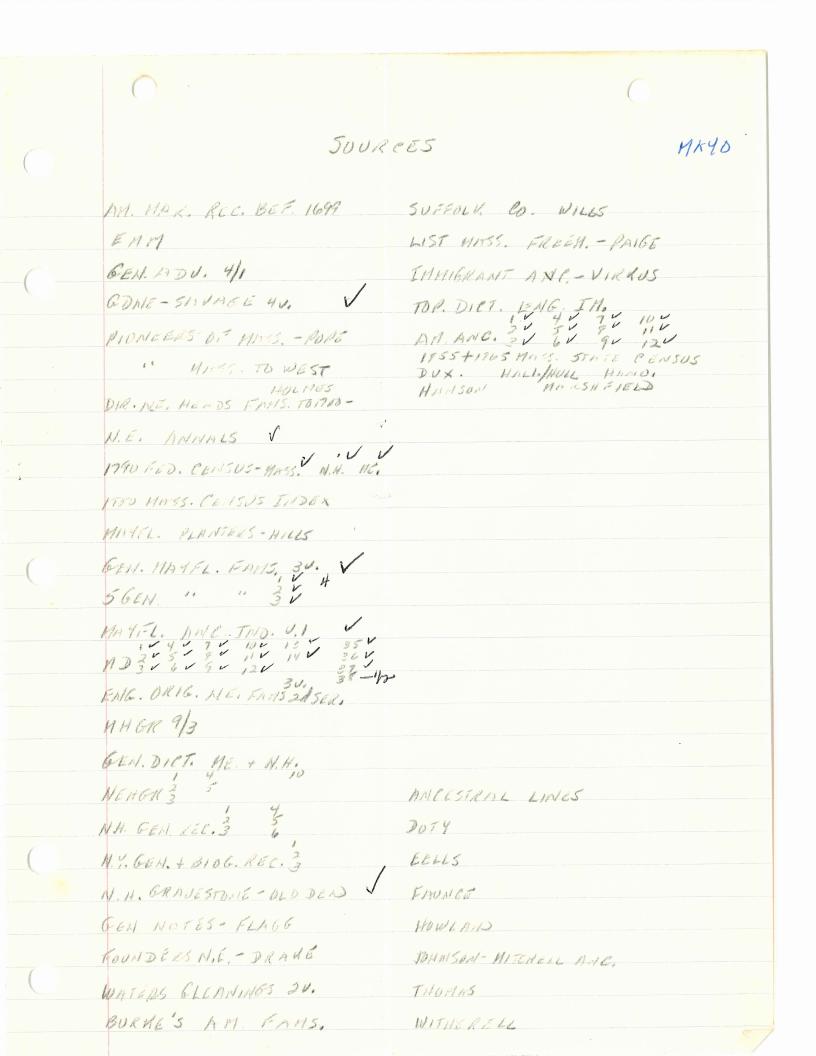 SOURCES
MK40
AM. MAR. REC. BEF. 1699
EMM
GEN. ADV. 4/1
GDNE-SAVAGE 4V. ✓
PIONEERS OF MASS. - POPE
" MASS. TO WEST
HOLMES
DIR. NE. HEADS FAMS. TO 1790-
N.E. ANNALS ✓
1790 FED. CENSUS-MASS. ✓ N.H. ✓ ME. ✓
MASS. CENSUS INDEX
MAYFL. PLANTERS-HILLS
GEN. MAYFL. FAMS. 3V. ✓
5 GEN. " " 1 ✓ 2 ✓ 3 ✓ H
MAYFL. ANC. IND. V.1 ✓
MD 1 ✓ 4 ✓ 7 ✓ 10 ✓ 13 ✓ 35 ✓
2 ✓ 5 ✓ 8 ✓ 11 ✓ 14 ✓ 36 ✓
3 ✓ 6 ✓ 9 ✓ 12 ✓ 37 ✓
38 -1/2
ENG. ORIG. NE. FAMS 2d SER. 3V.
MHGR 9/3
GEN. DICT. ME. + N.H.
NEHGR 1 2 3 4 5 10
N.H. GEN. REC. 1 2 3 4 5 6
N.Y. GEN. + BIOG. REC. 1 2 3
N.H. GRAVESTONE-OLD DEAD ✓
GEN NOTES-FLAGG
FOUNDERS N.E.-DRAKE
WATERS GLEANINGS 2V.
BURKE'S AM. FAMS.
SUFFOLK CO. WILLS
LIST MASS. FREEM.-PAIGE
IMMIGRANT ANC.-VIRKUS
TOP. DICT. ENG. IM.
AM. ANC. 1 ✓ 4 ✓ 7 ✓ 10 ✓
2 ✓ 5 ✓ 8 ✓ 11 ✓
3 ✓ 6 ✓ 9 ✓ 12 ✓
1855+1865 MASS. STATE CENSUS
DUX. HALI./HULL HANO.
HANSON MARSHFIELD
ANCESTRAL LINES
DOTY
EELLS
FAUNCE
HOWLAND
JOHNSON-MITCHELL ANC.
THOMAS
WITHERELL